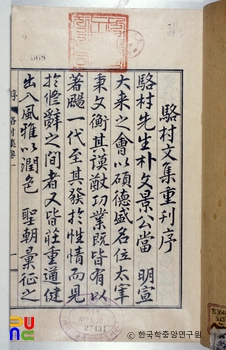 駱村文集重刊序
駱村先生朴文景公當 明宣
大来之會以碩德盛名位太宰
秉文衡其謨猷功業既皆有以
著颺一代至其發於性情而見
於脩辭之間者又皆莊重道健
出入風雅以潤色 聖朝彙征之
駱村集卷一
568
27431
© 한국학중앙연구원